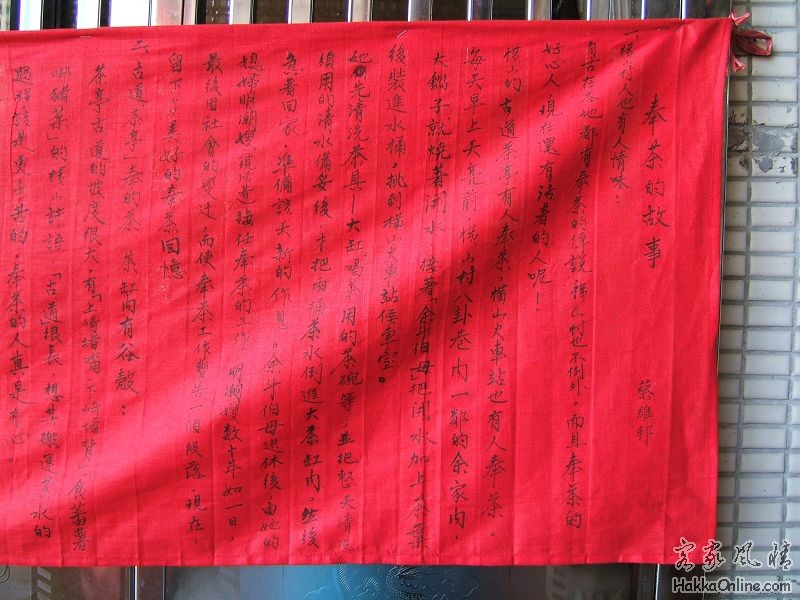 奉茶的故事
蔡維邦
一、橫山村人也有人情味：
自古在各地都有奉茶的傳說，橫山村也不例外，而且奉茶的
好心人，現在還有活著的人呢！
橫山的古道茶亭有人奉茶，橫山火車站也有人奉茶。
每天早上天亮前，橫山村八卦巷內一鄰的余家內，
大鍋子就燒著開水，接著「余斗伯母」把開水加上茶葉
後裝進水桶，挑到橫山火車站侯車室。
她先清洗茶具—大缸喝茶用的茶碗等，並把整天清洗
須用的清水備妥後，才把兩桶茶水倒進大茶缸內。然後
急著回家，準備該天新的作息。余斗伯母退休後，由她的
媳婦明潮嫂現活著接任奉茶的工作，明潮嫂數十年如一日，
最後因社會的變迁，而使奉茶工作暫告一個段落，現在，
留下了美好的奉茶回憶。
二、古道茶亭－奉的茶，茶缸內有谷殼：
茶亭古道的坡度很大，有「上崎堵嘴，下崎堵背」「食蕃薯
的橫山諺語，「古道很長，想其搬運茶水的
過程該是更辛苦的，奉茶的人真是有心。
客家風情
HakkaOnline.com